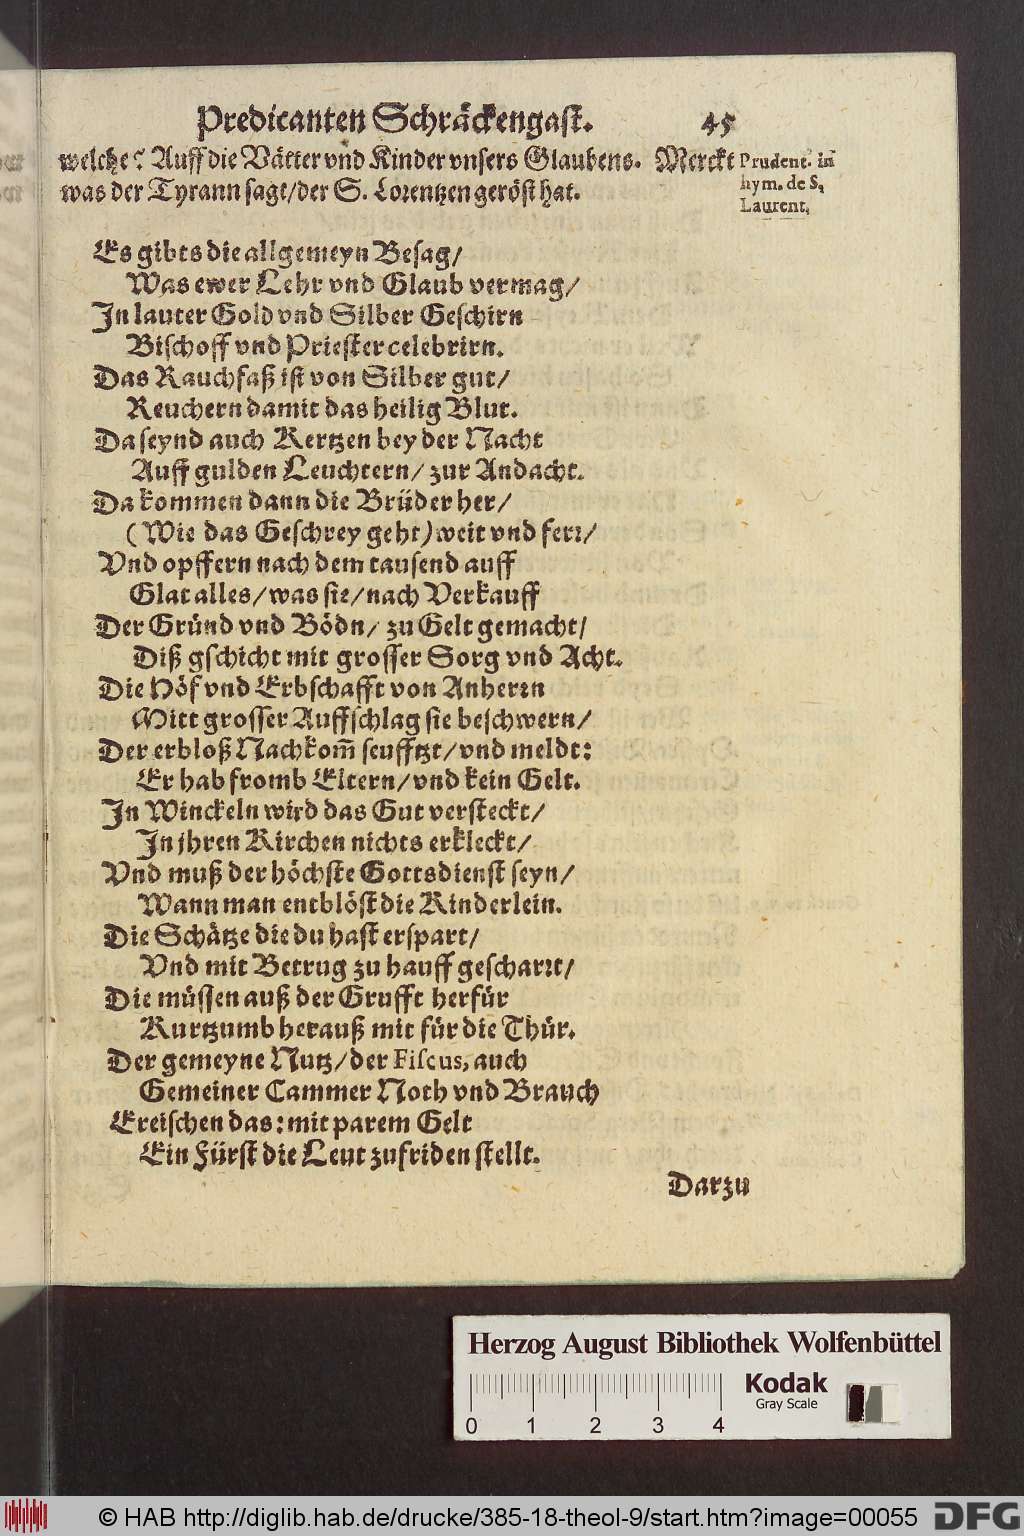 Predicanten Schräckengast. 45
welche? Auff die Vätter vnd Kinder vnsers Glaubens. Merckt
was der Tyrann sagt/der S. Lorentzen geröst hat.
Prudent. in
hym. de S.
Laurent.
Es gibts die allgemeyn Besag/
Was ewer Lehr vnd Glaub vermag/
In lauter Gold vnd Silber Geschirn
Bischoff vnd Priester celebrirn.
Das Rauchfaß ist von Silber gut/
Reuchern damit das heilig Blut.
Da seynd auch Kertzen bey der Nacht
Auff gulden Leuchtern/ zur Andacht.
Da kommen dann die Brüder her/
(Wie das Geschrey geht) weit vnd ferr/
Vnd opffern nach dem tausend auff
Glat alles/was sie/nach Verkauff
Der Gründ vnd Bödn/ zu Gelt gemacht/
Diß gschicht mit grosser Sorg vnd Acht.
Die Höf vnd Erbschafft von Anherrn
Mitt grosser Auffschlag sie beschwern/
Der erbloß Nachkom̃ seufftzt/vnd meldt:
Er hab fromb Eltern/vnd kein Gelt.
In Winckeln wird das Gut versteckt/
In jhren Kirchen nichts erkleckt/
Vnd muß der höchste Gottsdienst seyn/
Wann man entblöst die Kinderlein.
Die Schätze die du hast erspart/
Vnd mit Betrug zu hauff gescharrt/
Die müssen auß der Grufft herfür
Kurtzumb herauß mit für die Thür.
Der gemeyne Nutz/der Fiscus, auch
Gemeiner Cammer Noth vnd Brauch
Ereischen das: mit parem Gelt
Ein Fürst die Leut zufriden stellt.
Darzu
Herzog August Bibliothek Wolfenbüttel
Kodak
Gray Scale
0 1 2 3 4
© HAB http://diglib.hab.de/drucke/385-18-theol-9/start.htm?image=00055
DFG